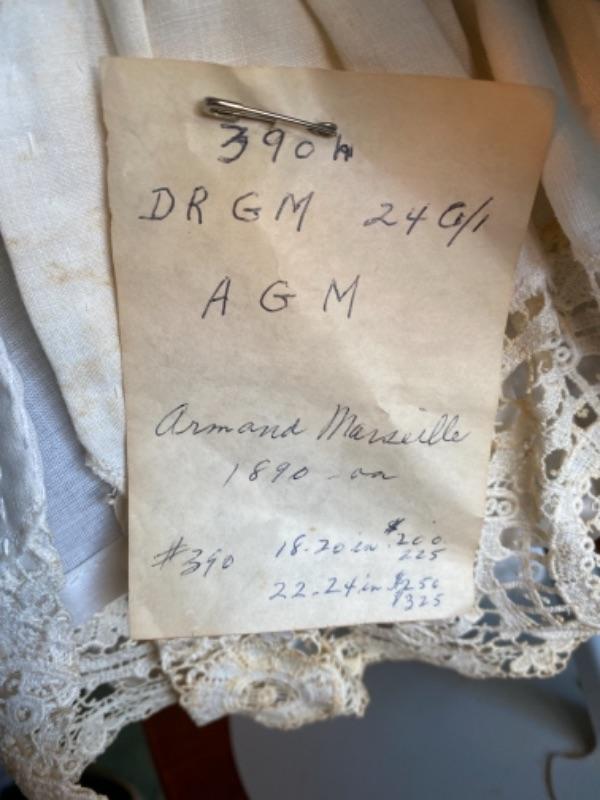 390 n
DRGM 24 G/1
AGM
Armand Marseille
1890 - on
#390 18-20 in $200
225
22-24 in $250
$325